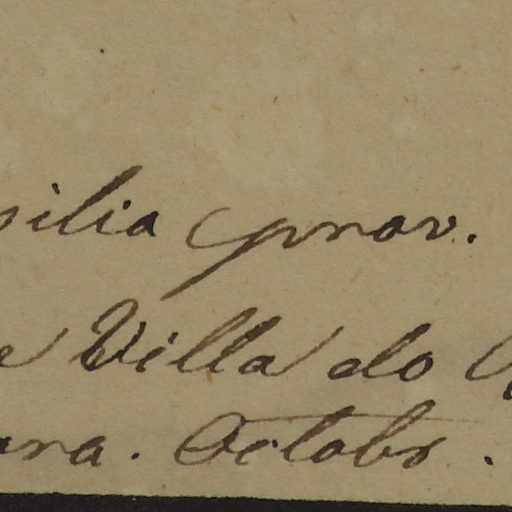 silia prov.
e Villa do
ara. Octobr.